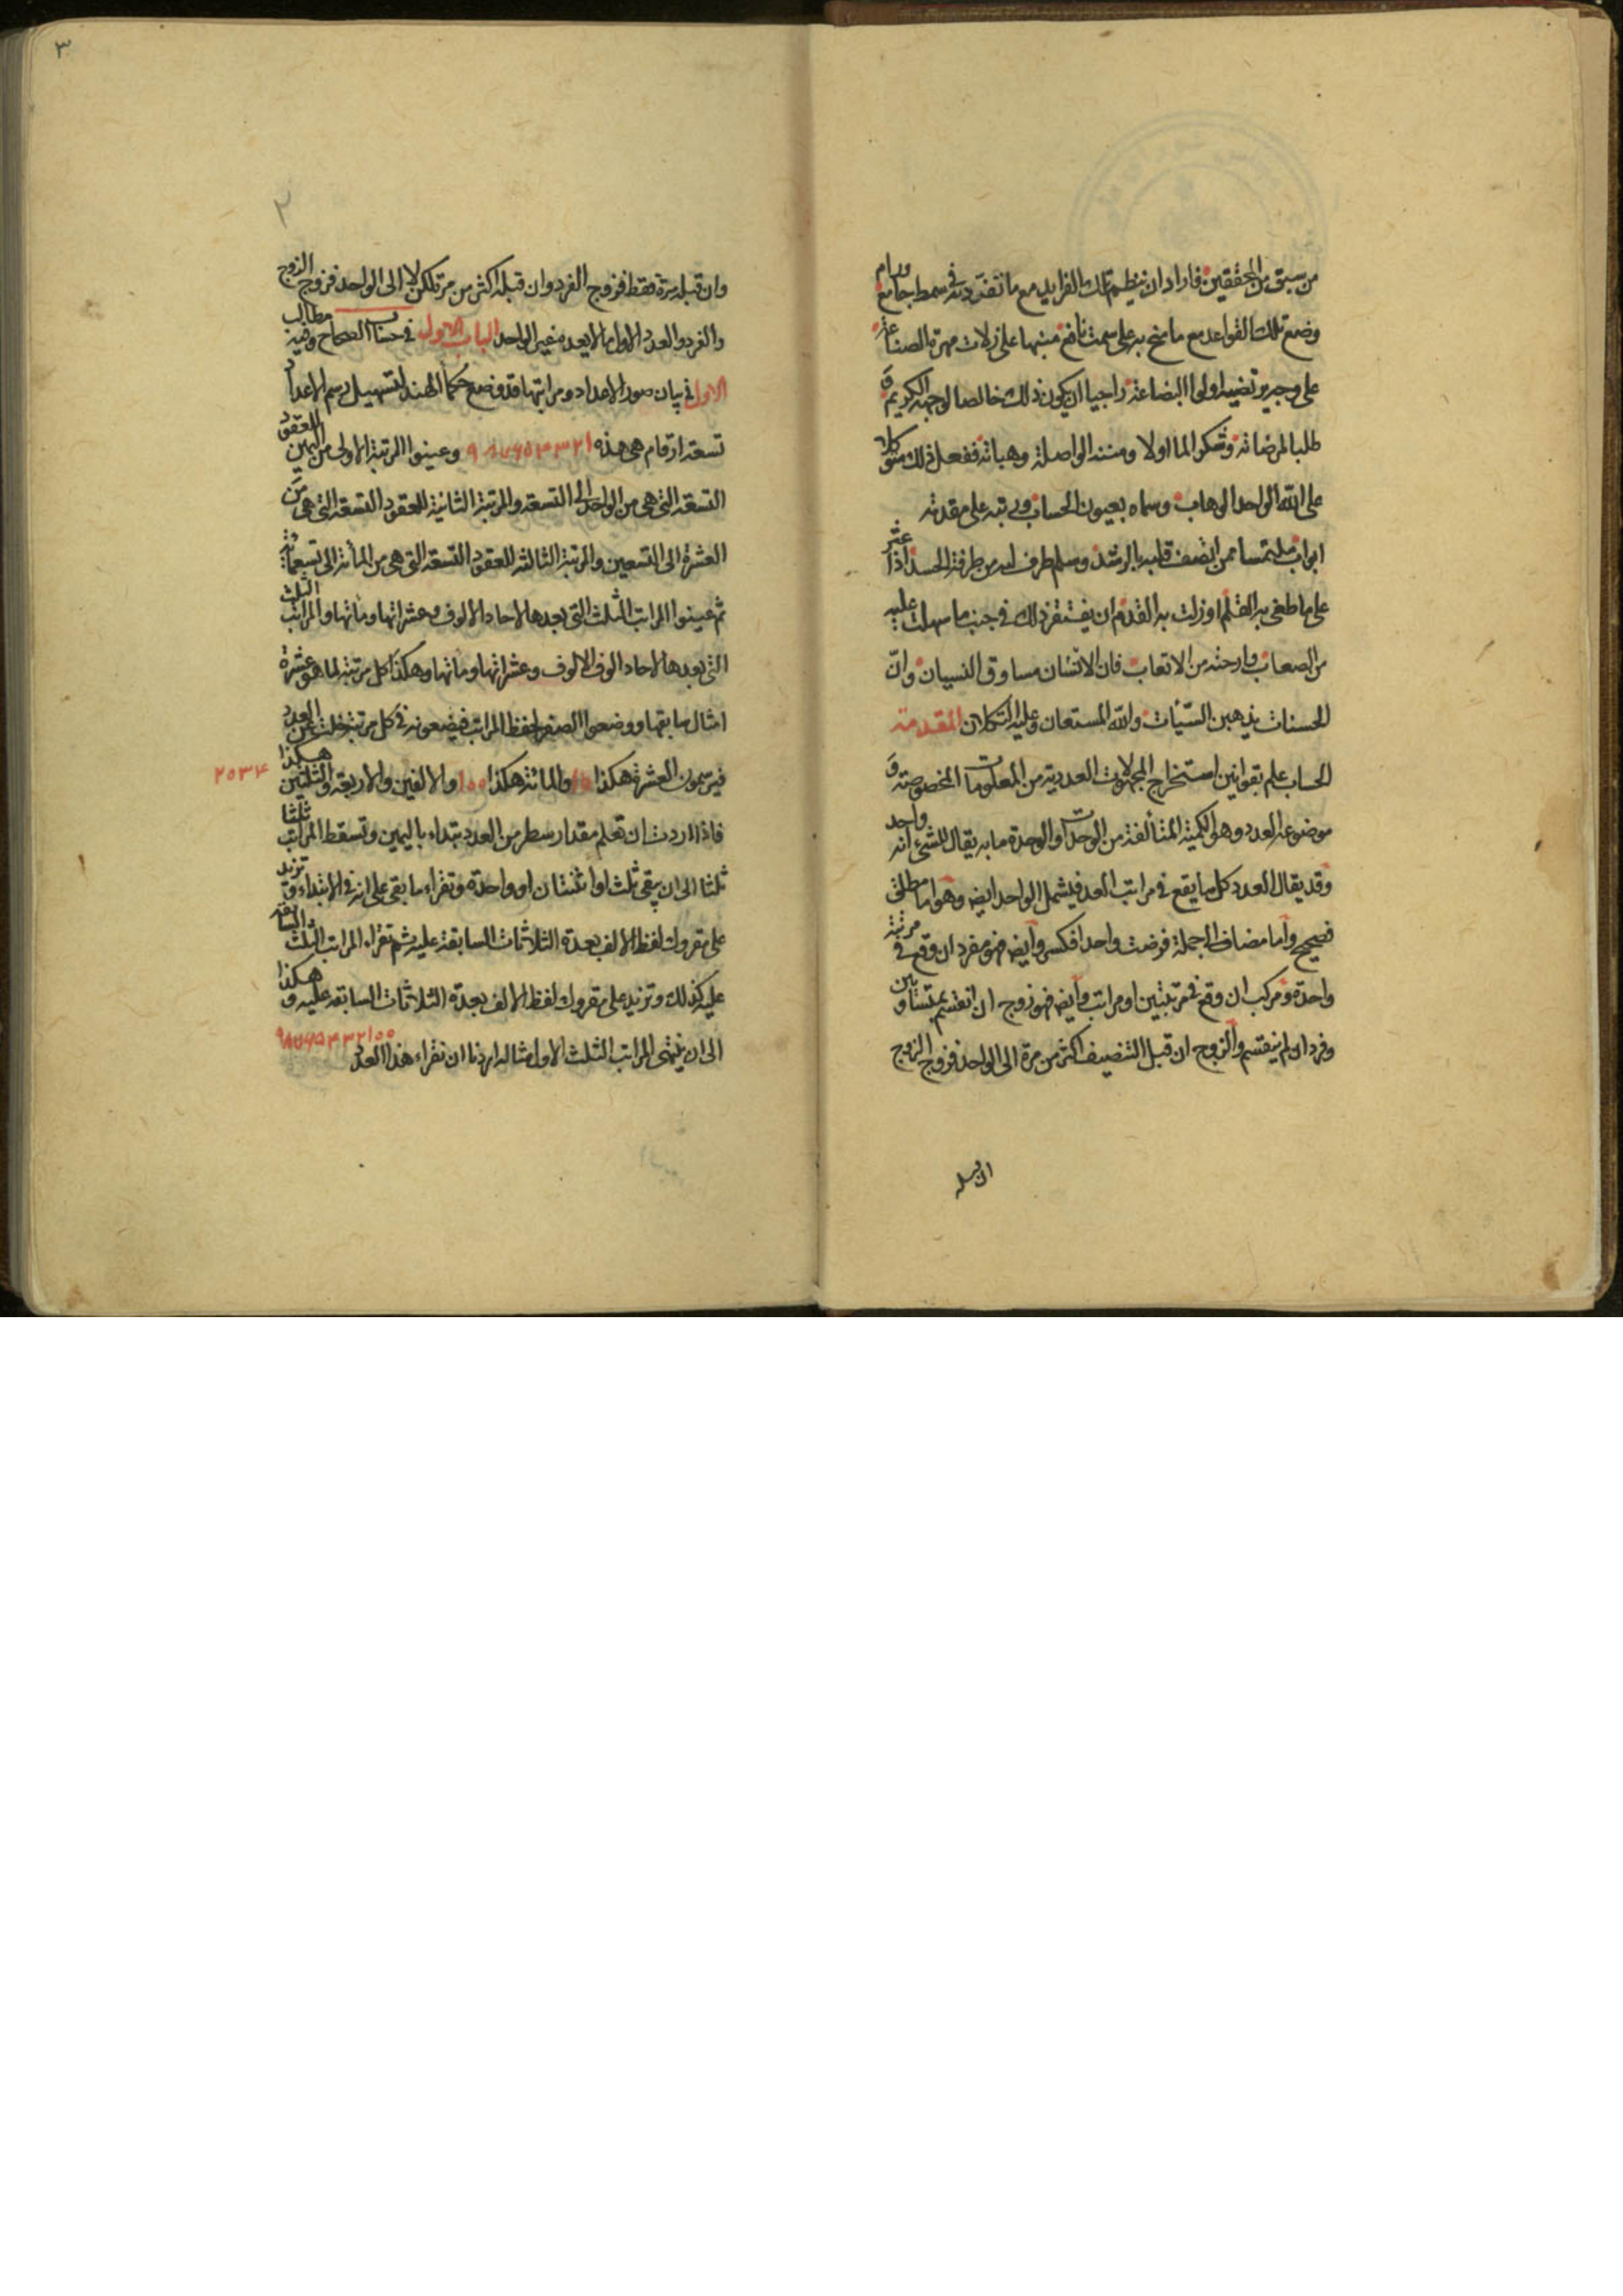 من سبق من المحققين فاراد ان ينظم تلك الفرايد مع ما تفرد به في سمط جامع ورام
وضع تلك القواعد مع ما سنح به على سمت نافع منبها على زلات مهرة الصناعة
على وجه يرتضيه اولوا البضاعة راجيا ان يكون ذلك خالصا لوجهه الكريم و
طلبا لمرضاته وشكرا لما اولاه من مننه الواصلة وهباته ففعل ذلك متوكلا
على الله الواحد الوهاب وسماه بعيون الحساب ورتبه على مقدمة
ابواب ملتمسا ممن اتصف قلبه بالرشد وسلم طرف لبه من طرفة الحسد اذا عثر
على ما طغى به القلم او زلت به القدم ان يغتفر ذلك في جنب ما سهلت عليه
من الصعاب وارحته من الاتعاب فان الانسان مساوق النسيان وان
الحسنات يذهبن السيئات والله المستعان وعليه التكلان المقدمة
الحساب علم بقوانين استخراج المجهولات العددية من المعلومات المخصوصة و
موضوعه العدد وهو الكمية المتألفة من الوحدات والوحدة ما به يقال للشيء انه واحد
وقد يقال العدد كل ما يقع في مراتب العد فيشمل الواحد ايضا وهو اما مطلق
فصحيح واما مضاف الى جملة فرضت واحدا فكسر وايضا فهو مفرد ان وقع في مرتبة
واحدة ومركب ان وقع في مرتبتين او مراتب وايضا فهو زوج ان انقسم بمتساويين
وفرد ان لم ينقسم والزوج ان قبل التنصيف اكثر من مرة الى الواحد فزوج الزوج
٣
٢
وان قبله مرة فقط فزوج الفرد وان قبله اكثر من مرة لكن لا الى الواحد فزوج الزوج
والفرد والعدد الاول ما لا يعده غير الواحد الباب الاول في حساب الصحاح وفيه مطالب
الاول في بيان صور الاعداد ومراتبها قد وضع حكماء الهند لتسهيل رسم الاعداد
تسعة ارقام هي هذه ١ ٢ ٣ ٤ ٥ ٦ ٧ ٨ ٩ وعينوا المرتبة الاولى من اليمين للعقود
التسعة التي هي من الواحد الى التسعة والمرتبة الثانية للعقود التسعة التي هي من
العشرة الى التسعين والمرتبة الثالثة للعقود التسعة التي هي من المأة الى تسعمائة
ثم عينوا المراتب الثلث التي بعدها لاحاد الالوف وعشراتها ومأتها والمراتب الثلث
التي بعدها لاحاد الوف الالوف وعشراتها ومأتها وهكذا كل مرتبة لما هو عشرة
امثال ما بقها ووضعوا الصفر لحفظ المراتب فيضعونه في كل مرتبة خلت عن العدد
فيرسمون العشرة هكذا ١٥ والمائة هكذا ١٥٥ والالفين والاربعة والثلثين هكذا ٢٥٣۴
فاذا اردت ان تعلم مقدار سطر من العدد تبتداء باليمين وتسقط المراتب ثلثا
ثلثا الى ان يبقى ثلث او اثنتان او واحدة وتقراء ما بقى على انه في الابتداء وتزيد
على مقروك لفظ الالف بعدة الثلاثات السابقة عليه ثم تقراء المراتب الثلث السابقة
عليه كذلك وتزيد على مقروك لفظ الالف بعدة الثلاثات السابقة عليه وهكذا
الى ان ينتهى المراتب الثلث الاول مثاله اردنا ان نقراء هذا العدد ٩٨٧٦٥۴٣٢١٥٥